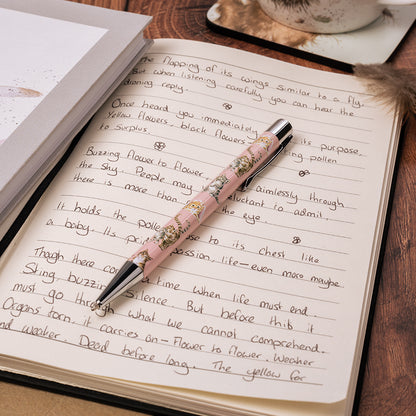 The flapping of its wings similar to a fly,
But when listening carefully you can hear the
droning reply.
Once heard you immediately its purpose.
Yellow flowers, black flowers pollen
to surplus.
Buzzing flower to flower, aimlessly through
the sky. People may reluctant to admit,
there is more than the eye.
It holds the pollen to its chest like
a baby. Its passion, life - even more maybe
Though there a time when life must end.
Sting, buzzing Silence. But before this it
must go through what we cannot comprehend.
Organs torn, it carries on - Flower to flower. Weaker
and weaker. Dead before long. The yellow for